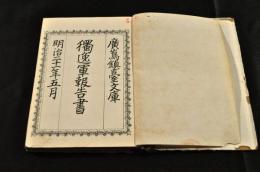 廣島鎮臺文庫
獨逸軍報告書
明治二十一年五月